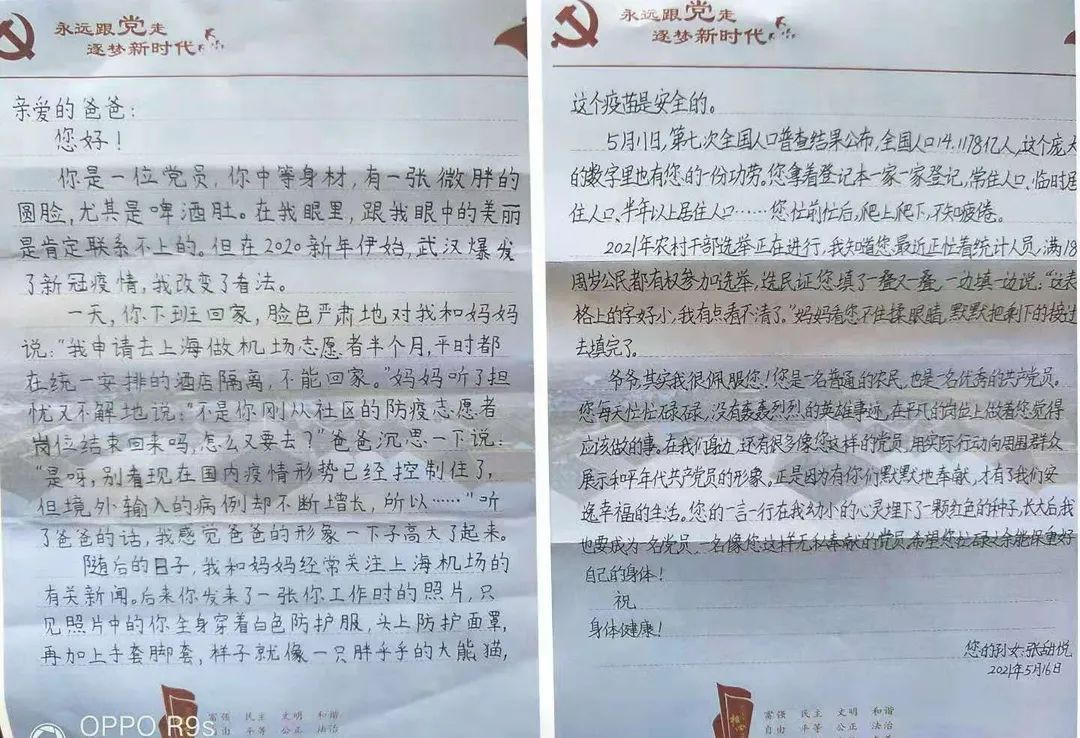 永远跟党走
逐梦新时代
亲爱的爸爸：
您好！
你是一位党员，你中等身材，有一张微胖的
圆脸，尤其是啤酒肚。在我眼里，跟我眼中的美丽
是肯定联系不上的。但在2020新年伊始，武汉爆发
了新冠疫情，我改变了看法。
一天，你下班回家，脸色严肃地对我和妈妈
说：“我申请去上海做机场志愿者半个月，平时都
在统一安排的酒店隔离，不能回家。”妈妈听了担
忧又不解地说：“不是你刚从社区的防疫志愿者
岗位结束回来吗，怎么又要去？”爸爸沉思一下说：
“是呀，别看现在国内疫情形势已经控制住了，
但境外输入的病例却不断增长，所以……”听
了爸爸的话，我感觉爸爸的形象一下子高大了起来。
随后的日子，我和妈妈经常关注上海机场的
有关新闻。后来你发来了一张你工作时的照片，只
见照片中的你全身穿着白色防护服，头上防护面罩，
再加上手套脚套，样子就像一只胖乎乎的大熊猫，
富强 民主 文明 和谐
自由 平等 公正 法治
OPPO R9s
永远跟党走
逐梦新时代
这个疫苗是安全的。
5月11日，第七次全国人口普查结果公布，全国人口14.1178亿人，这个庞大
的数字里也有您的一份功劳。您拿着登记本一家一家登记，常住人口、临时居
住人口、半年以上居住人口……您忙前忙后，爬上爬下，不知疲倦。
2021年农村干部选举正在进行，我知道您最近正忙着统计人员，满18
周岁公民都有权参加选举，选民证您填了一叠又一叠，一边填一边说：“这表
格上的字好小，我有点看不清了。”妈妈看您不住揉眼睛，默默把剩下的接过
去填完了。
爷爷，其实我很佩服您！您是一名普通的农民，也是一名优秀的共产党员。
您每天忙忙碌碌，没有轰轰烈烈的英雄事迹，在平凡的岗位上做着您觉得
应该做的事。在我们身边，还有很多像您这样的党员，用实际行动向周围群众
展示和平年代共产党员的形象。正是因为有你们默默地奉献，才有了我们安
逸幸福的生活。您的一言一行在我幼小的心灵埋下了一颗红色的种子，长大后我
也要成为一名党员，一名像您这样无私奉献的党员。希望您忙碌之余能保重好
自己的身体！
祝
身体健康！
您的孙女：张甜悦
2021年5月16日
富强 民主 文明 和谐
自由 平等 公正 法治